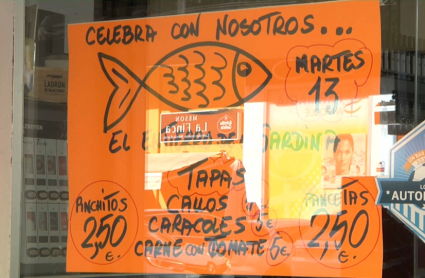 CELEBRA CON NOSOTROS...
MARTES
13
EL ENTIERRO DE LA SARDINA
TAPAS
CALLOS
CARACOLES 5€
CARNE CON TOMATE 5€
PINCHITOS
2,50
PANCETAS
2,50
MESON
La Finca
LADRON
AUTO